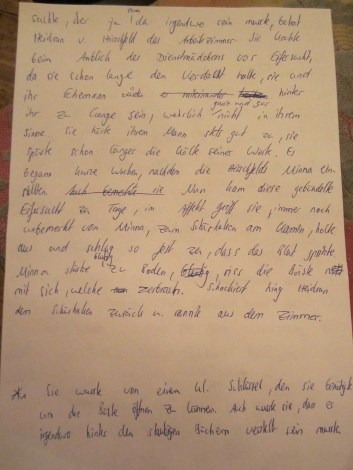 suchte, der ja nun da irgendwo sein musste, betrat
Heidrun v. Hirschfeld das Arbeitszimmer. Sie kochte
beim Anblick des Dienstmädchens vor Eifersucht,
da sie schon lange den Verdacht hatte, sie und
ihr Ehemann hinter
ihr zu Gange sein, wahrlich nicht in ihrem
Sinne. Sie hörte ihrem Mann stets gut zu, sie
spürte schon länger die Kälte seiner Worte. Es
begann kurze Wochen, nachdem die Hirschfelds Minna ein-
stellten. Nun kam diese geballte
Eifersucht zu Tage, im Affekt griff sie, immer noch
unbemerkt von Minna, zum Schürhaken am Kamin, holte
aus und schlug so fest zu, dass das Blut spritzte.
Minna stürzte blutig zu Boden, riss die Büste
mit sich, welche zerbrach. Schockiert hing Heidrun
den Schürhaken zurück u. rannte aus dem Zimmer.
* Sie wusste von einem kl. Schlüssel, den sie benötigte
um die Büste öffnen zu können. Auch wusste sie, dass er
irgendwo hinter den staubigen Büchern versteckt sein musste